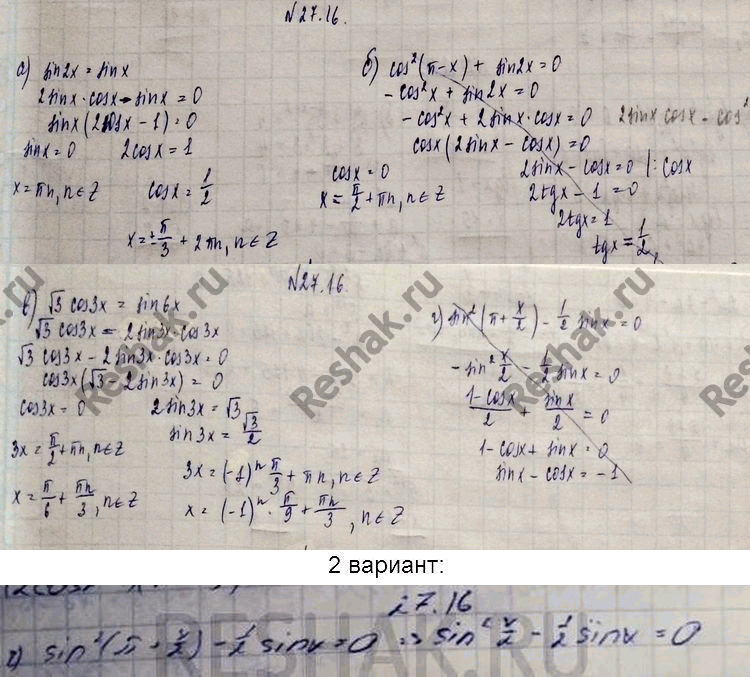 N27.16.
а) sin2x = sinx
2sinx·cosx - sinx = 0
sinx(2cosx - 1) = 0
sinx = 0 2cosx = 1
x = πn, n ∈ Z cosx = 1/2
x = ± π/3 + 2πn, n ∈ Z
б) cos²(π-x) + sin2x = 0
-cos²x + sin2x = 0
-cos²x + 2sinx·cosx = 0 2sinx cosx - cos²
cosx(2sinx - cosx) = 0
cosx = 0 2sinx - cosx = 0 |: cosx
x = π/2 + πn, n ∈ Z 2tgx - 1 = 0
2tgx = 1
tgx = 1/2,
N27.16.
в) √3 cos3x = sin6x
√3 cos3x = 2sin3x·cos3x
√3 cos3x - 2sin3x·cos3x = 0
cos3x(√3 - 2sin3x) = 0
cos3x = 0 2sin3x = √3
sin3x = √3/2
3x = π/2 + πn, n ∈ Z 3x = (-1)ⁿ π/3 + πn, n ∈ Z
x = π/6 + πn/3, n ∈ Z x = (-1)ⁿ · π/9 + πn/3, n ∈ Z
г) sin²(π + x/2) - 1/2 sinx = 0
-sin² x/2 - 1/2 sinx = 0
1-cosx/2 + sinx/2 = 0
1 - cosx + sinx = 0
sinx - cosx = -1
Reshak.ru
Reshak.ru
Reshak.ru
2 вариант:
27.16
г) sin²(π + x/2) - 1/2 sinx = 0 => sin² x/2 - 1/2 sinx = 0
RESHAK.RU